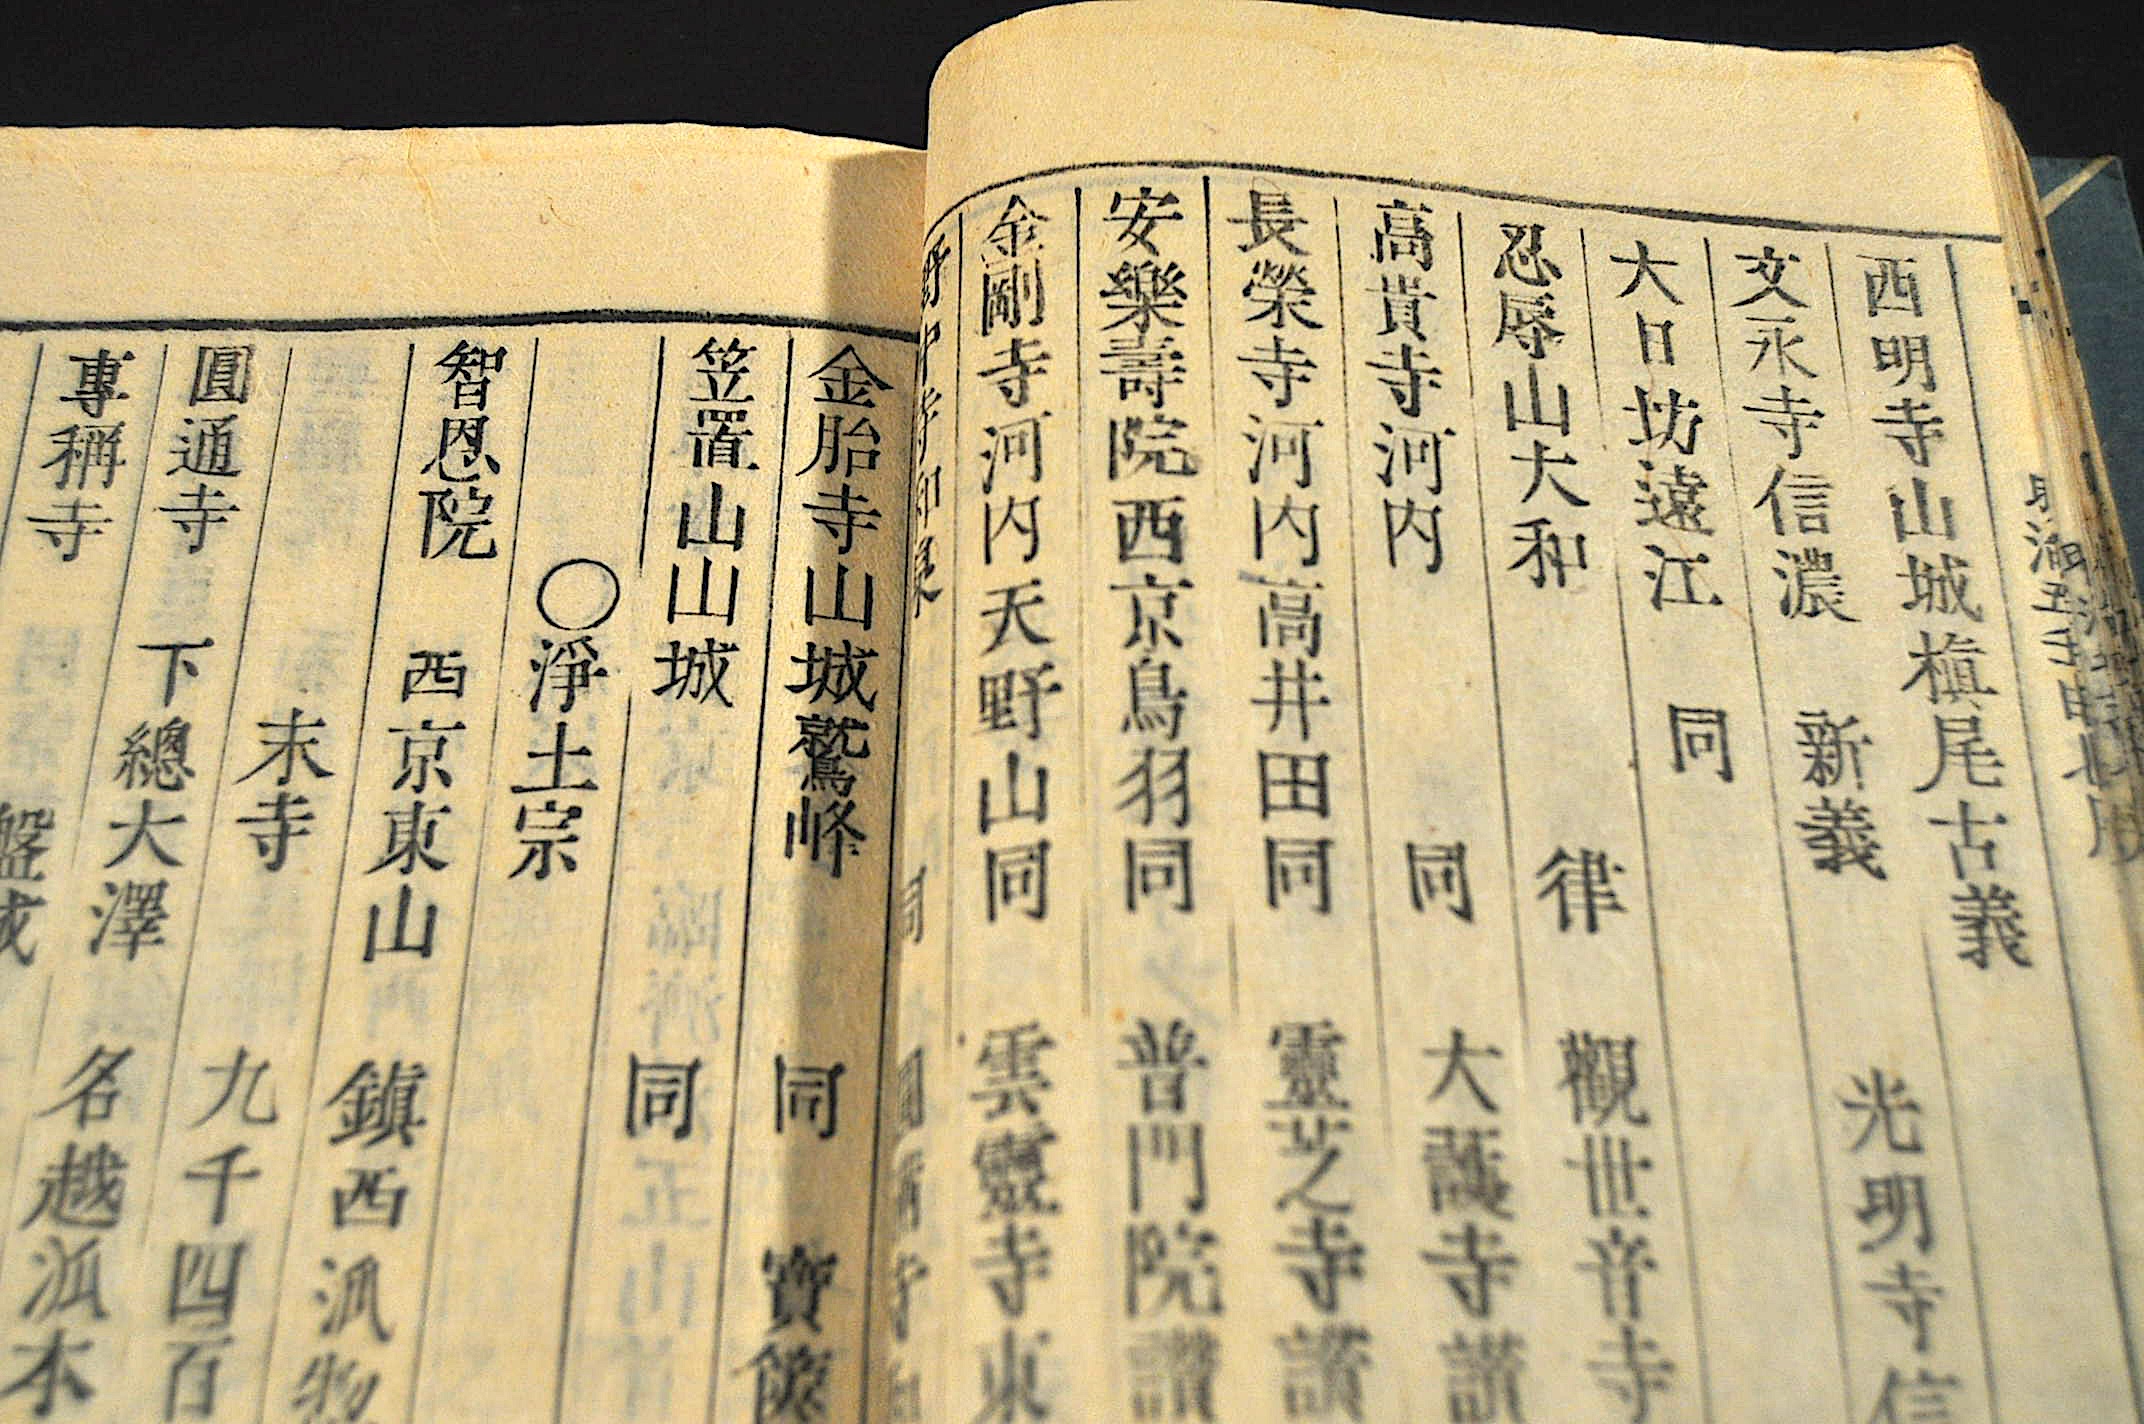 西明寺山城槇尾古義
文永寺信濃 新義 光明寺信
大日坊遠江 同
忍辱山大和 律 觀世音寺
高貴寺河内 同 大護寺讃
長榮寺河内高井田同 靈芝寺讃
安樂壽院西京鳥羽同 普門院讃
金剛寺河内天野山同 雲靈寺東
野中寺和泉 同
金胎寺山城鷲峰 同 寶
笠置山山城 同
○淨土宗
智恩院 西京東山 鎮西派
末寺 九千四百
圓通寺 下總大澤 名越派本
專稱寺 盤城